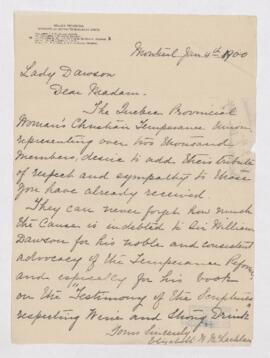 Montreal Jan 4th 1900
Lady Dawson
Dear Madam.
The Quebec Provincial
Woman's Christian Temperance Union
representing over two thousand
Members, desire to add their tribute
of respect and sympathy to those
you have already received.
They can never forget how much
the Cause is indebted to Sir William
Dawson for his noble and consistent
advocacy of the Temperance Reform
and especially for his book
on the "Testimony of the Scriptures
respecting Wine and Strong Drink"
Yours Sincerely
Elizabeth W. McLachlan